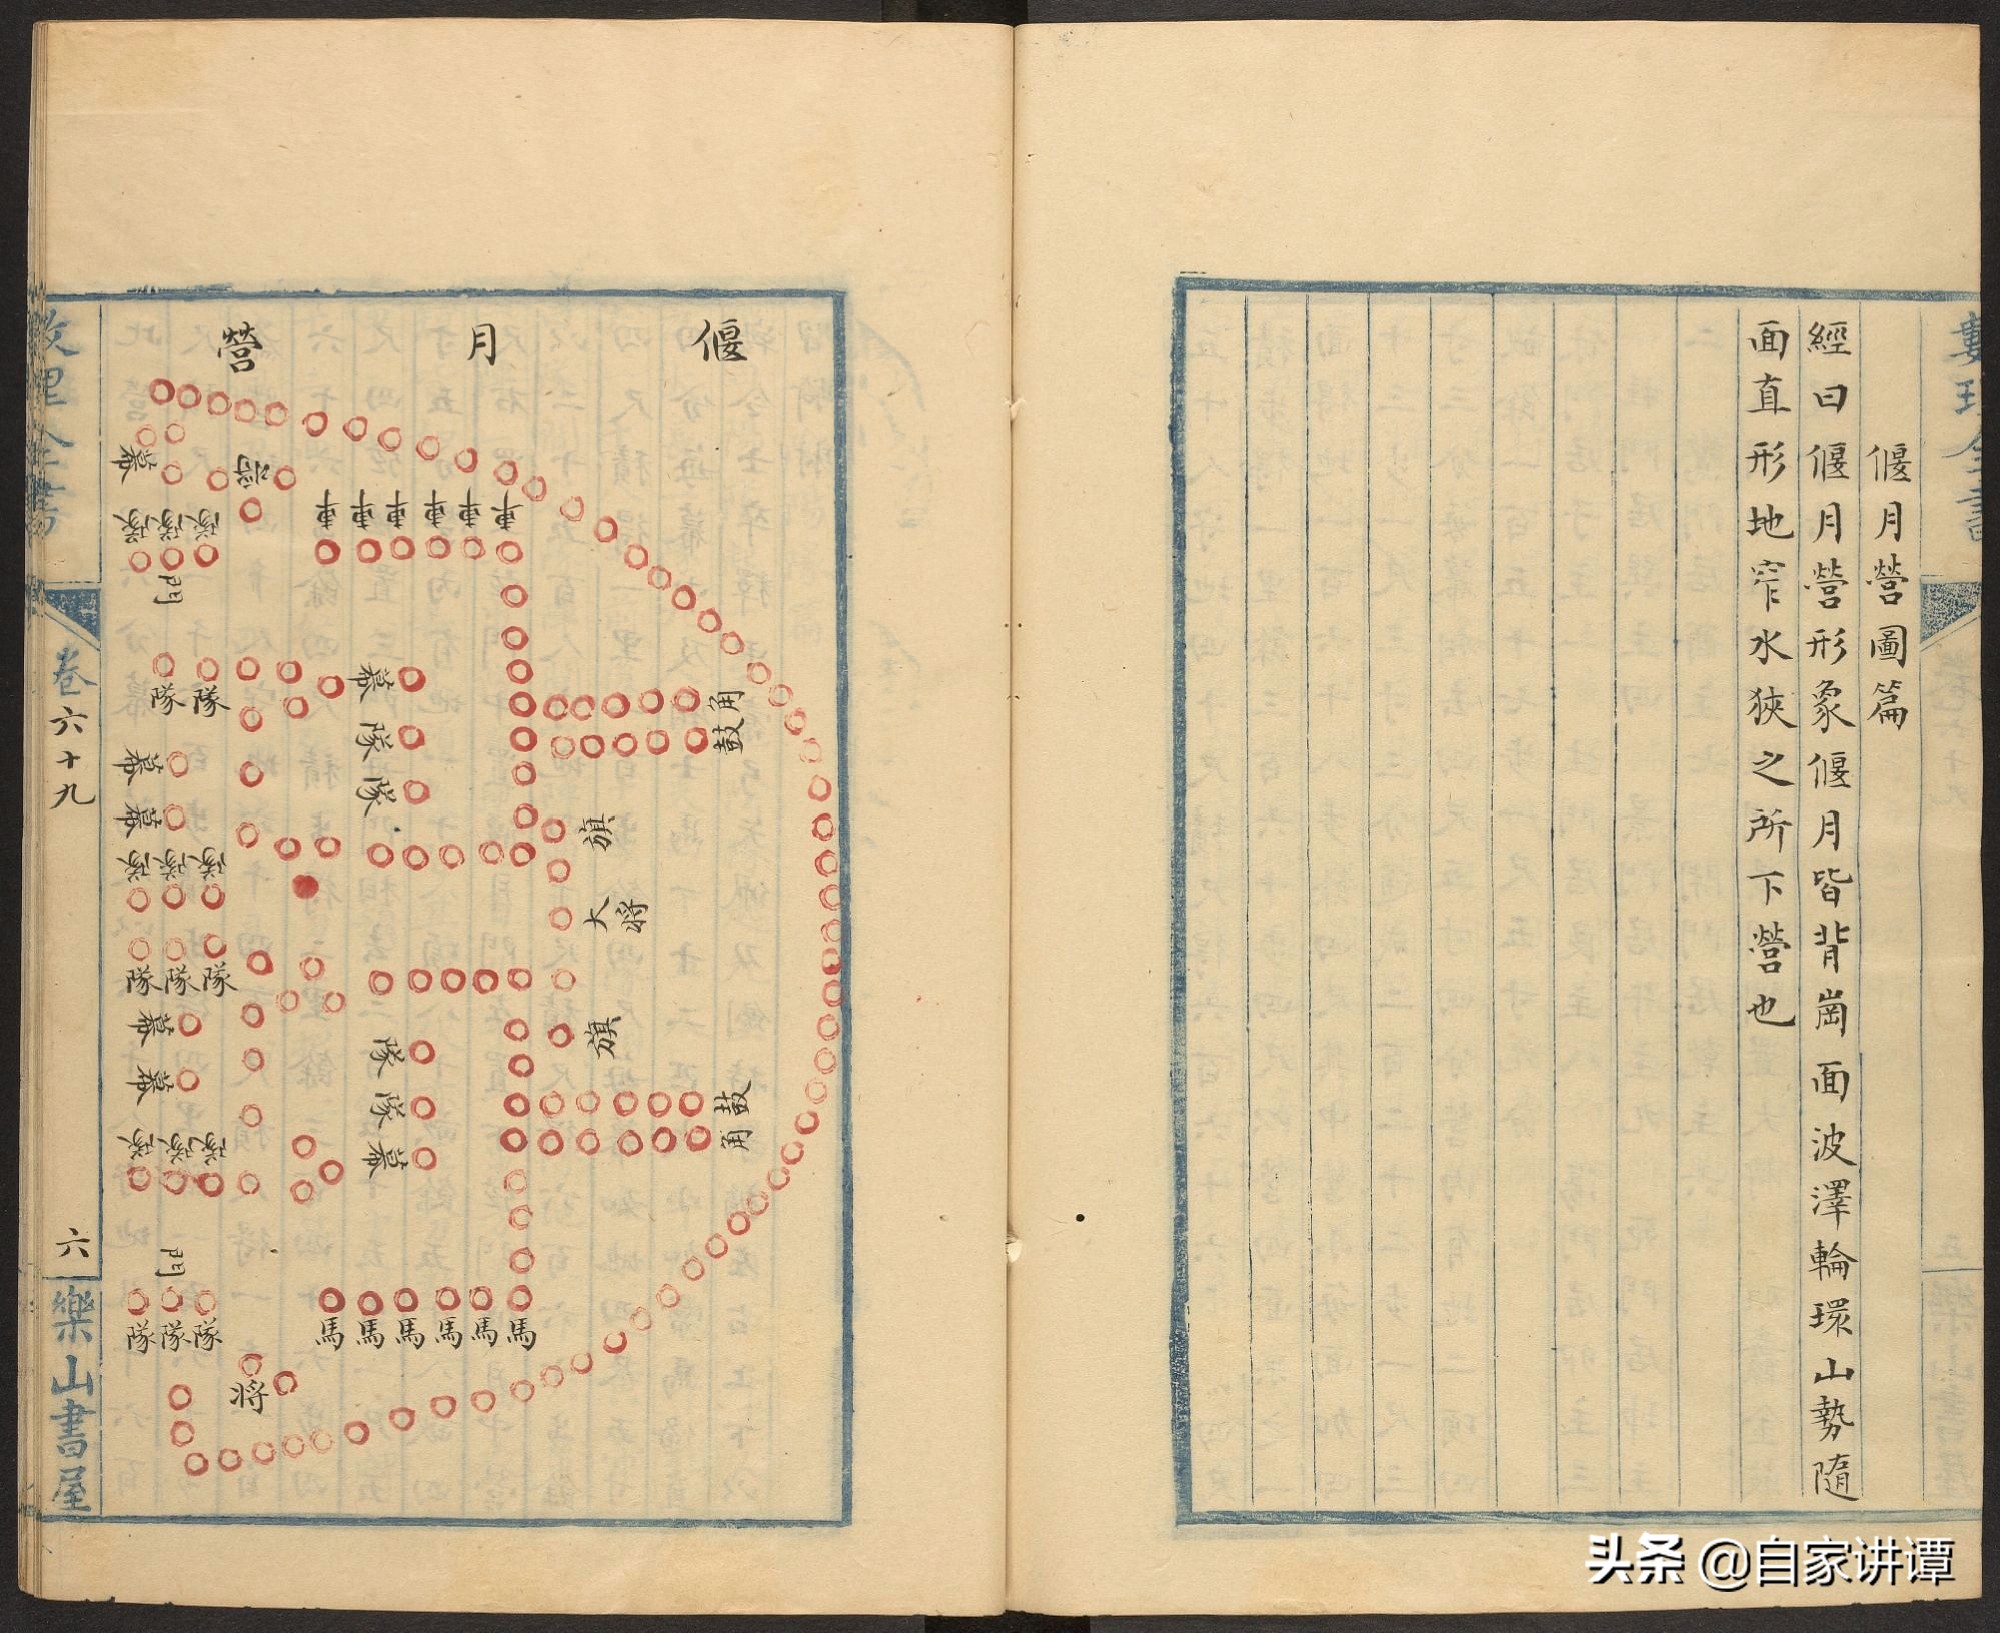 偃月營圖篇
經曰偃月營形象偃月皆背崗面波澤輪環山勢隨
面直形地窄水狹之所下營也
偃月營
角
鼓
旗
大将
旗
鼓
角
車車車車車車
幕
隊
隊
隊
隊
幕
馬馬馬馬馬馬
将
将
幕
隊隊隊
門
隊隊
幕
幕
隊隊隊
隊隊隊
幕
幕
隊隊隊
門
隊隊隊
卷六十九
六
樂山書屋
头条 @自家讲谭